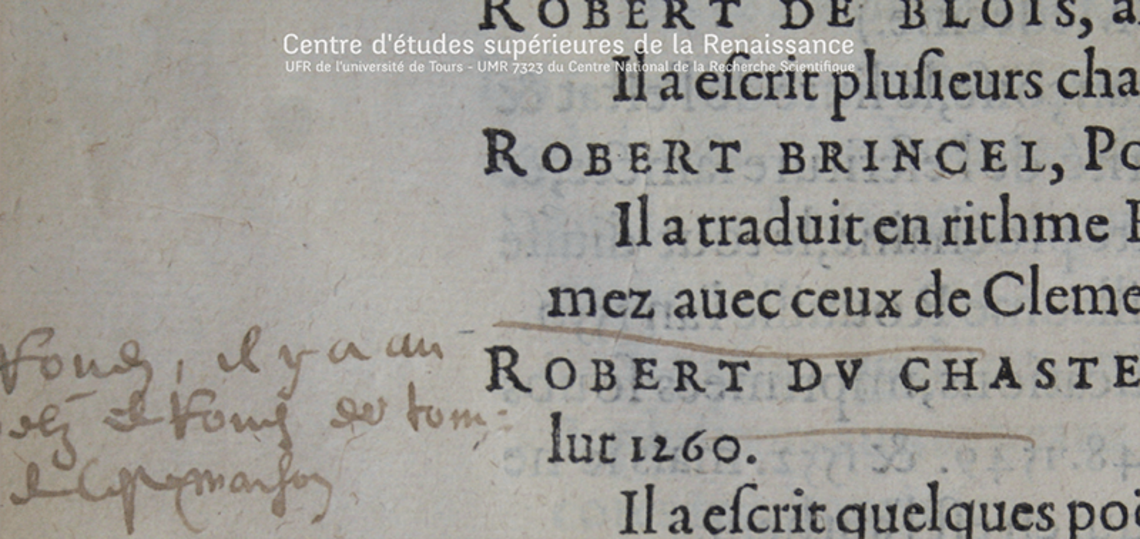 Centre d'études supérieures de la Renaissance
UFR de l'université de Tours - UMR 7323 du Centre National de la Recherche Scientifique
ROBERT DE BLOIS, a
Il a eſcrit pluſieurs cha
ROBERT BRINCEL, Po
Il a traduit en rithme
mez auec ceux de Cleme
ROBERT DV CHASTE
lut 1260.
Il a eſcrit quelques poë
il y a au